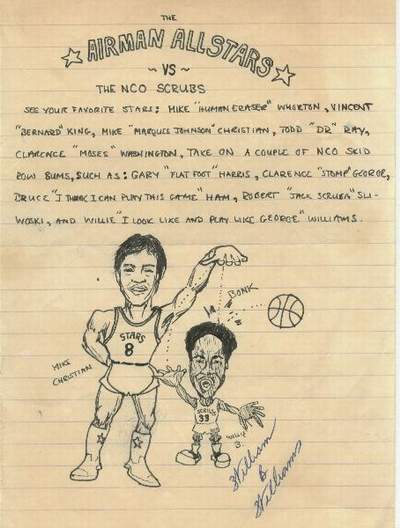 THE
AIRMAN ALLSTARS
~ VS ~
THE NCO SCRUBS
SEE YOUR FAVORITE STARS: MIKE "HUMAN ERASER" WHORTON, VINCENT
"BERNARD" KING, MIKE "MARQUES JOHNSON" CHRISTIAN, TODD "DR" RAY,
CLARENCE "MOSES" WASHINGTON, TAKE ON A COUPLE OF NCO SKID
ROW BUMS, SUCH AS: GARY "FLAT FOOT" HARRIS, CLARENCE "STOMP" GEORGE,
BRUCE "I THINK I CAN PLAY THIS GAME" HAM, ROBERT "JACK SCRUBA" SLI-
WOSKI, AND WILLIE "I LOOK LIKE AND PLAY LIKE GEORGE" WILLIAMS.
BONK
STARS
8
MIKE
CHRISTIAN
SCRUBS
33
WILLIE
B.
William
B
Williams